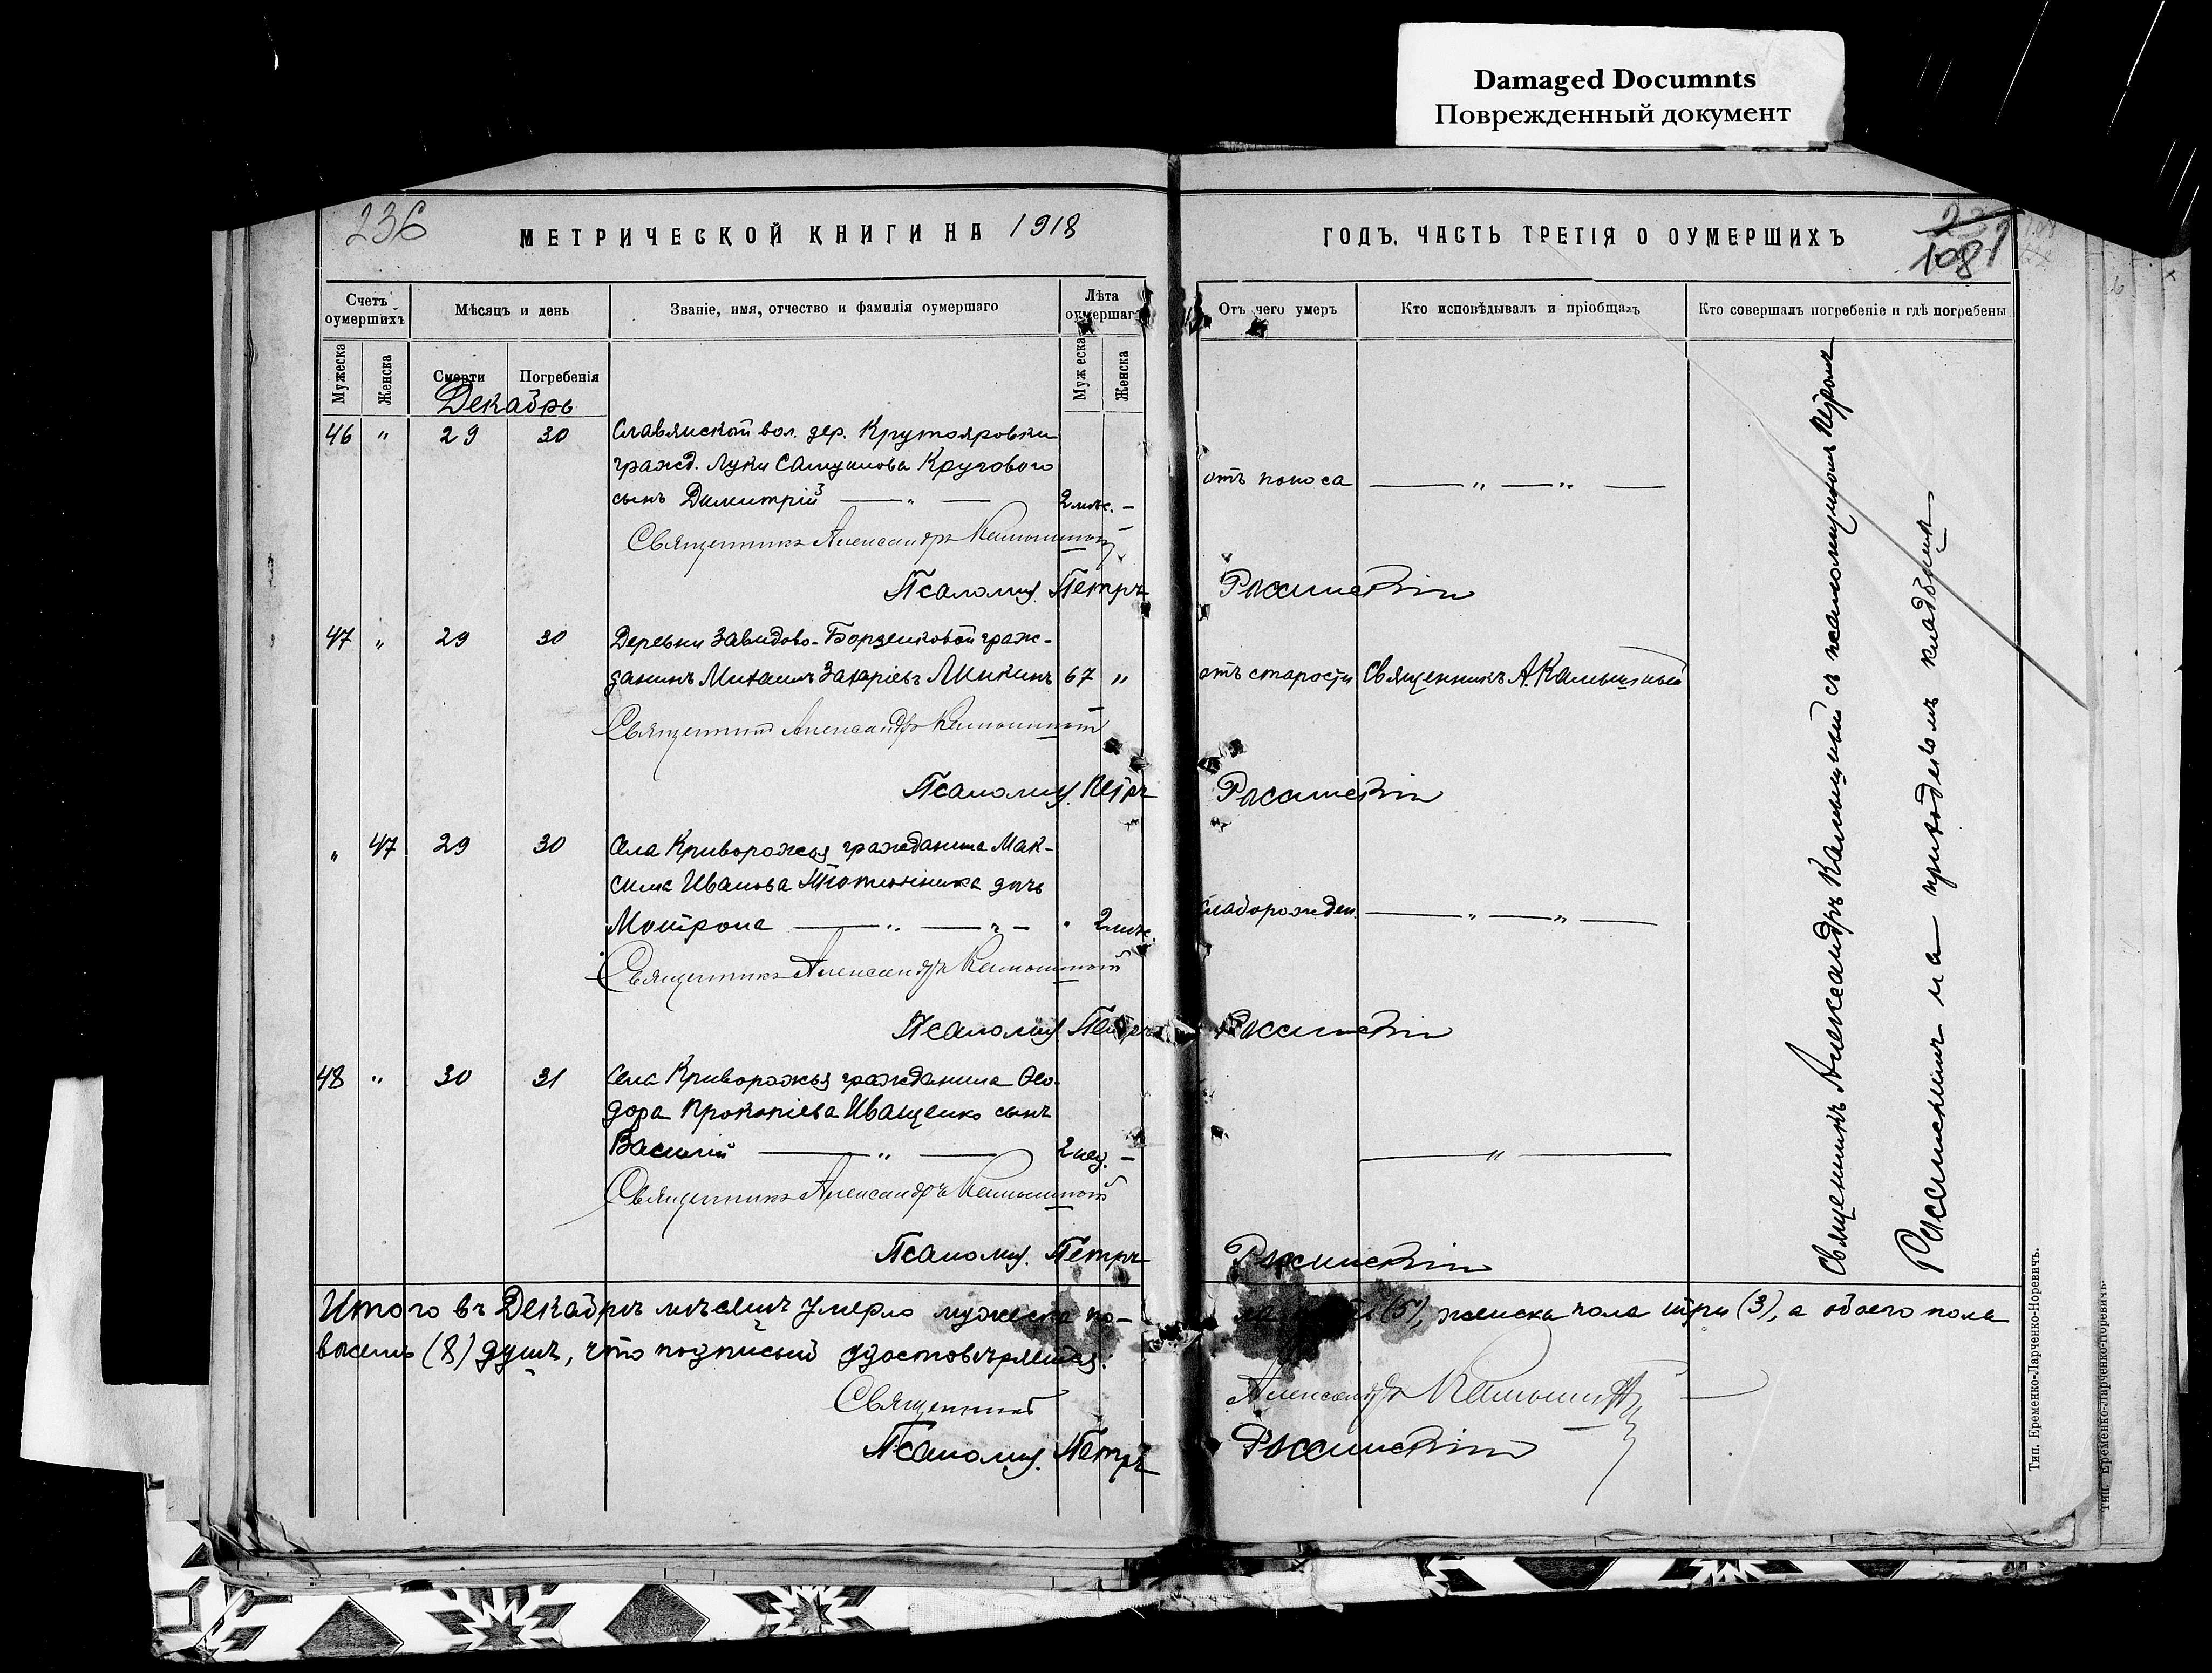 Damaged Documnts
Поврежденный документ
236
МЕТРИЧЕСКОЙ КНИГИ НА 1918
ГОДЪ. ЧАСТЬ ТРЕТІЯ О ОУМЕРШИХЪ
108
Счетъ оумершихъ
Мѣсяцъ и день
Званіе, имя, отчество и фамилія оумершаго
Лѣта оумершаго
Отъ чего умеръ
Кто исповѣдывалъ и пріобщалъ
Кто совершалъ погребеніе и гдѣ погребены
Мужеска
Женска
Смерти
Погребенія
Муж еска
Женска
Декабрь
46 " 29 30 Славянской вол. дер. Крутояровки
гражд. Луки Самуилова Кругового
сынъ Димитрій — " — 2 мѣс. — отъ поноса — " — " —
Священникъ Александръ Камышный
Псаломщ. Петръ Россинскій
47 " 29 30 Деревни Завидово-Борзенковой граж-
данинъ Михаилъ Захаріевъ Микинъ 67 " отъ старости Священникъ А. Камышный
Священникъ Александръ Камышный
Псаломщ. Петръ Россинскій
" 47 29 30 Села Криворожья гражданина Мак-
сима Иванова Тютюнника дочь
Мотрона — " — " — " 2 мѣс. слаборожден. — " — " —
Священникъ Александръ Камышный
Псаломщ. Петръ Россинскій
48 " 30 31 Села Криворожья гражданина Ѳео-
дора Прокопіева Иващенко сынъ
Василій — " — 2 нед. — — " —
Священникъ Александръ Камышный
Псаломщ. Петръ Россинскій
Священникъ Александръ Камышный съ псаломщикомъ Петромъ
Россинскимъ на приходскомъ кладбищѣ
Итого въ Декабрѣ мѣсяцѣ умерло мужеска по- (5), женска пола три (3), а обоего пола
восемь (8) душъ, что подписью удостовѣряемъ:
Священникъ Александръ Камышный
Псаломщ. Петръ Россинскій
Тип. Еременко-Ларченко-Норевичъ.
Тип. Еременко-Ларченко-Норевичъ.